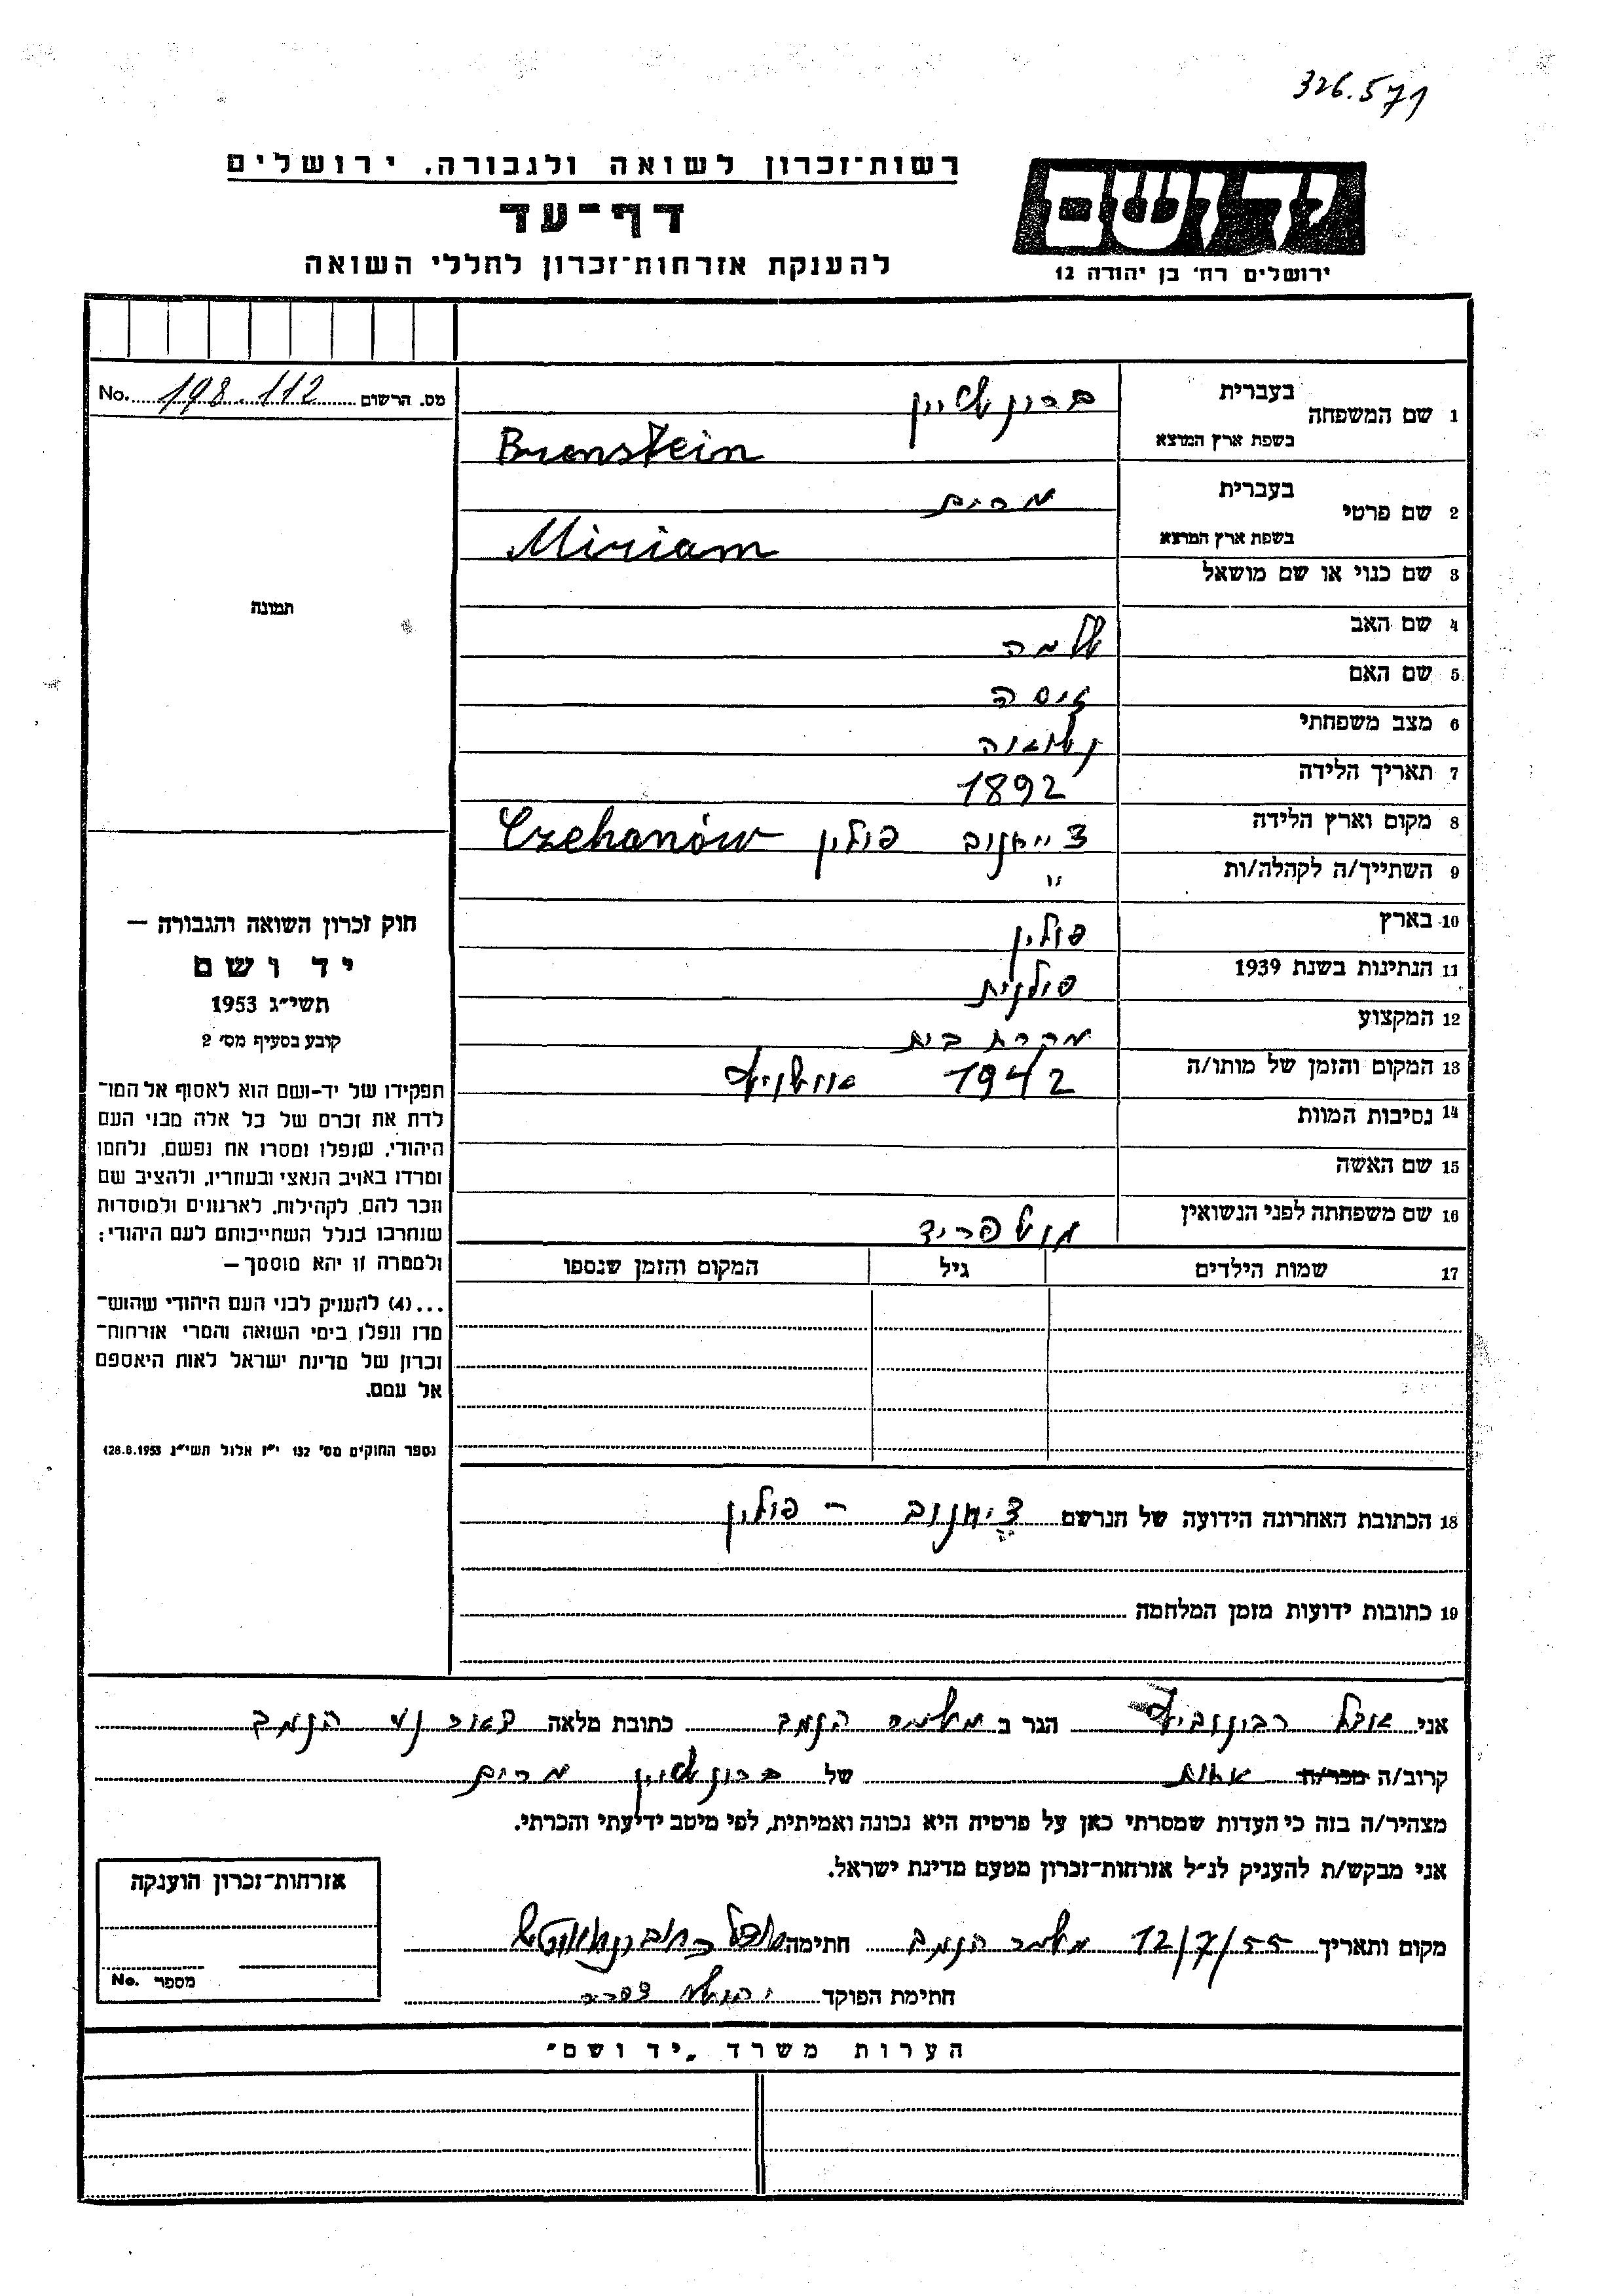 326.571
רשות־זכרון לשואה ולגבורה, ירושלים
דף־עד
להענקת אזרחות־זכרון לחללי השואה
יד ושם
ירושלים רח׳ בן יהודה 12
No. 198.112 מס. הרשום
1 שם המשפחה
בעברית ברונשטיין
בשפת ארץ המוצא Brenstein
2 שם פרטי
בעברית מרים
בשפת ארץ המוצא Miriam
3 שם כנוי או שם מושאל
4 שם האב שלמה
5 שם האם
6 מצב משפחתי נשואה
7 תאריך הלידה 1892
8 מקום וארץ הלידה פולין Czehanów
9 השתייך/ה לקהלה/ות "
10 בארץ פולין
11 הנתינות בשנת 1939 פולנית
12 המקצוע עקרת בית
13 המקום והזמן של מותו/ה 1942 אושויץ
14 נסיבות המוות
15 שם האשה
16 שם משפחתה לפני הנשואין
17 שמות הילדים גיל המקום והזמן שנספו
תמונה
חוק זכרון השואה והגבורה —
יד ושם
תשי״ג 1953
קובע בסעיף מס׳ 2
תפקידו של יד־ושם הוא לאסוף אל המו־
לדת את זכרם של כל אלה מבני העם
היהודי, שנפלו ומסרו את נפשם, נלחמו
ומרדו באויב הנאצי ובעוזריו, ולהציב שם
וזכר להם, לקהילות, לארגונים ולמוסדות
שנחרבו בגלל השתייכותם לעם היהודי;
ולמטרה זו יהא מוסמך —
...(4) להעניק לבני העם היהודי שהוש־
מדו ונפלו בימי השואה והמרי אזרחות־
זכרון של מדינת ישראל לאות היאספם
אל עמם.
(ספר החוקים מס׳ 132 י״ז אלול תשי״ג 28.8.1953)
18 הכתובת האחרונה הידועה של הנרשם ציחנוב – פולין
19 כתובות ידועות מזמן המלחמה
אני רבינוביץ הגר ב כתובת מלאה
קרוב/ה מכר/ה אחות של ברונשטיין מרים
מצהיר/ה בזה כי העדות שמסרתי כאן על פרטיה היא נכונה ואמיתית, לפי מיטב ידיעתי והכרתי.
אני מבקש/ת להעניק לנ״ל אזרחות־זכרון מטעם מדינת ישראל.
מקום ותאריך 12/7/55 חתימה
חתימת הפוקד
אזרחות־זכרון הוענקה
מספר No.
הערות משרד „יד ושם"